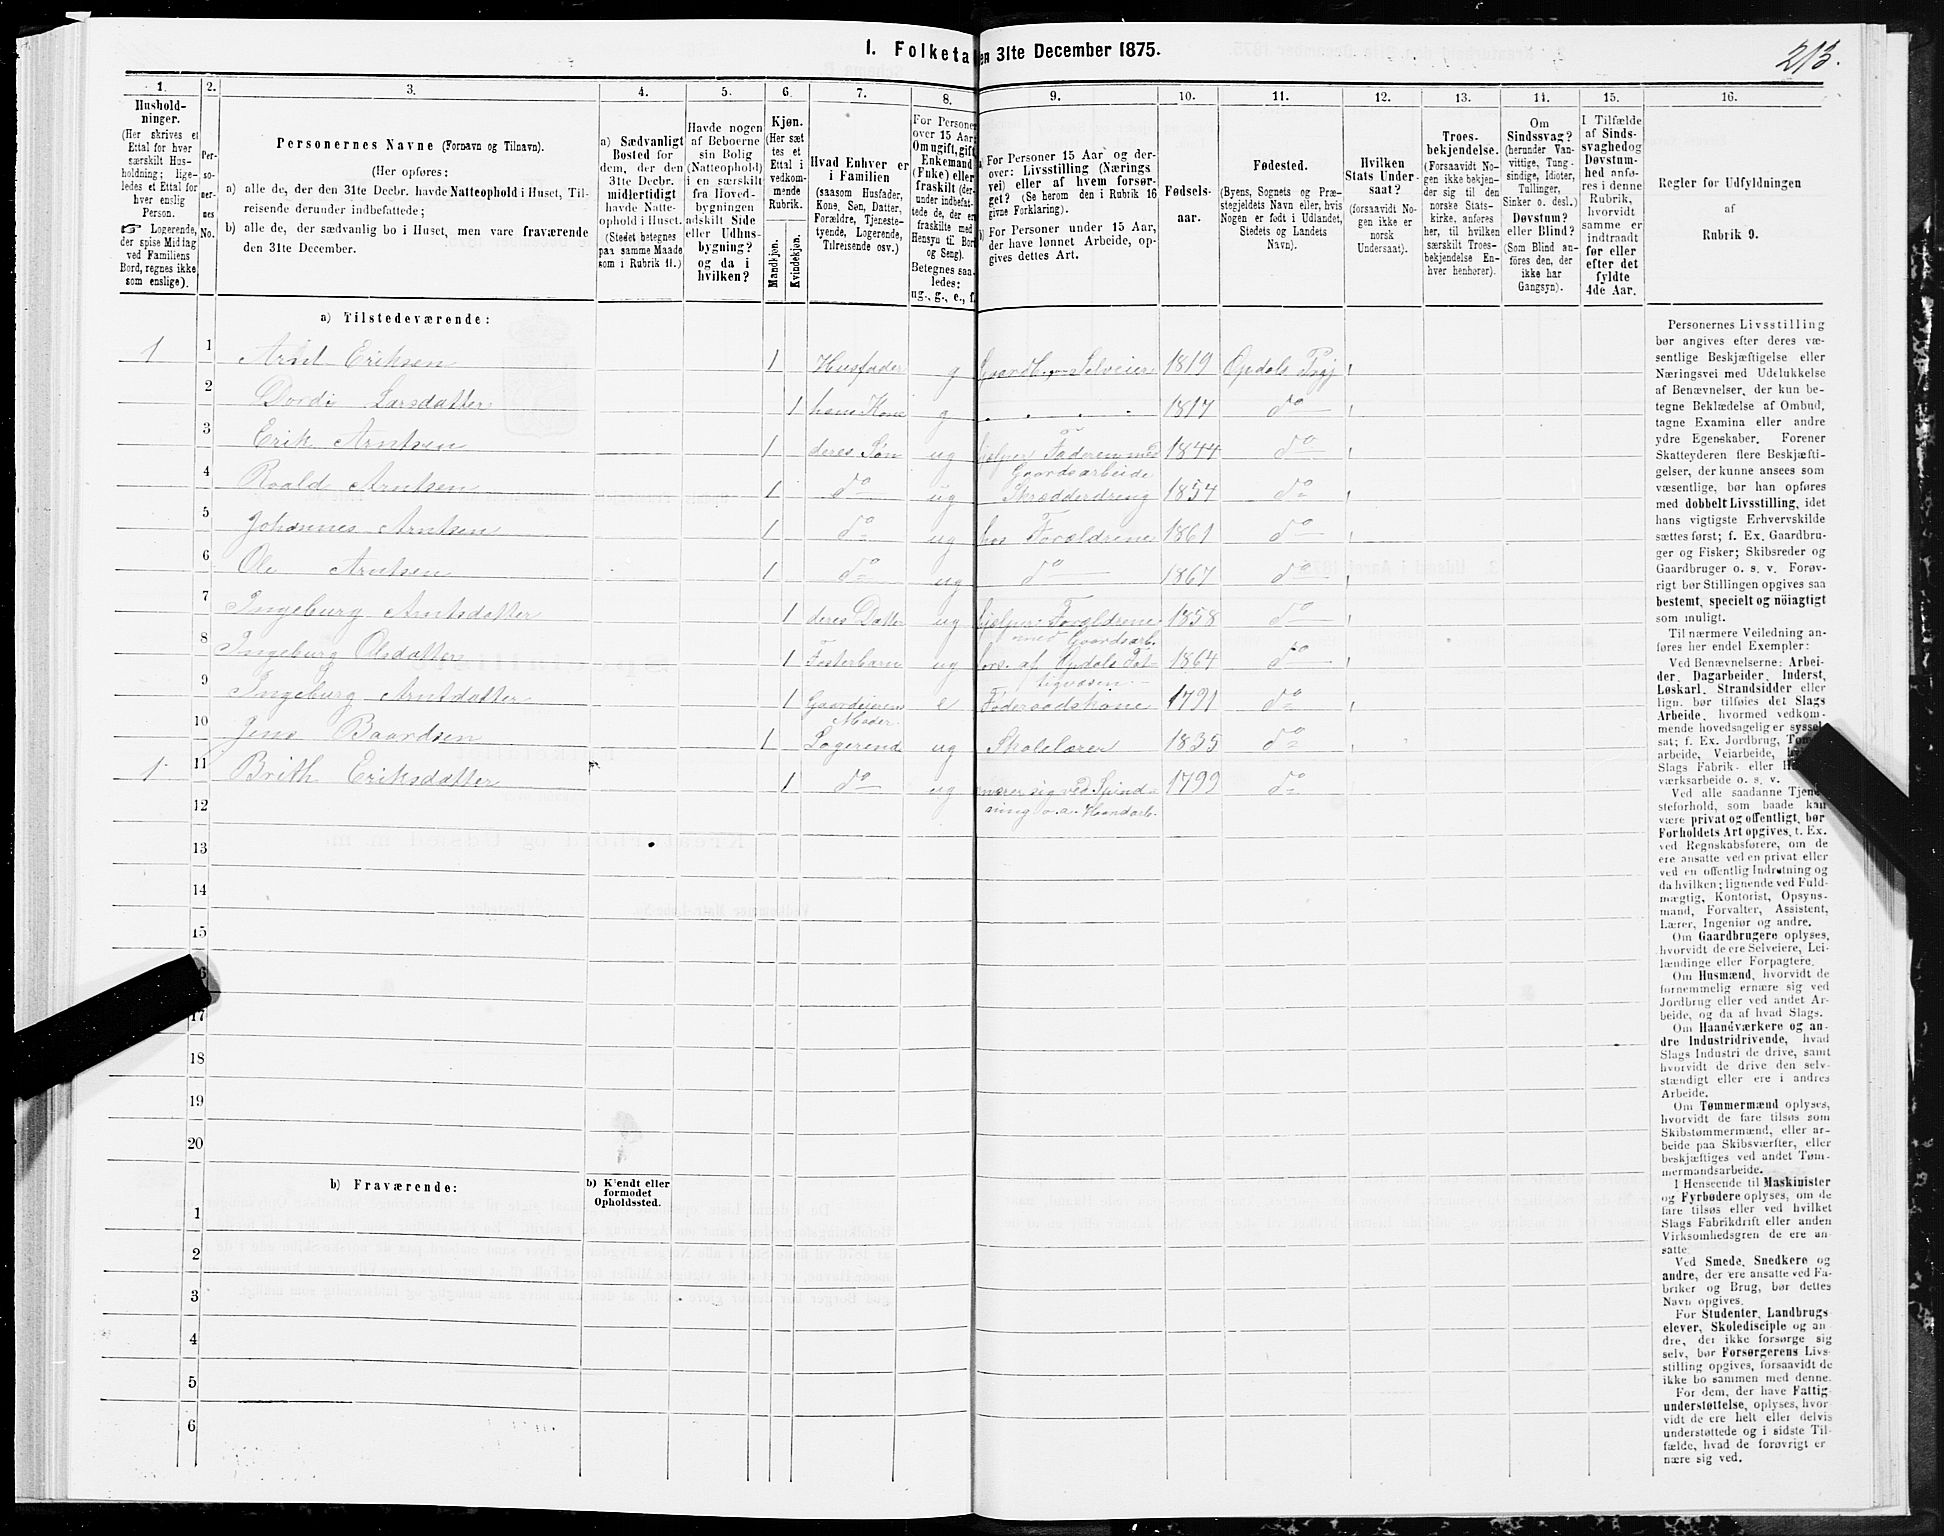 1. Folketal den 31te December 1875.
213.
1. 2. 3. 4. 5. 6. 7. 8. 9. 10. 11. 12. 13. 14. 15. 16.
Hushold-
ninger.
(Her skrives et
Ettal for hver
særskilt Hus-
holdning; lige-
ledes et Ettal for
hver enslig
Person.
☞ Logerende,
der spise Middag
ved Familiens
Bord, regnes ikke
som enslige).
Per-
so-
ner-
nes
No.
Personernes Navne (Fornavn og Tilnavn).
(Her opføres:
a) alle de, der den 31te Decbr. havde Natteophold i Huset, Til-
reisende derunder indbefattede;
b) alle de, der sædvanlig bo i Huset, men vare fraværende
den 31te December.
a) Sædvanligt
Bosted for
dem, der den
31te Decbr.
midlertidigt
havde Natte-
ophold i Huset.
(Stedet betegnes
paa samme Maade
som i Rubrik 11.)
Havde nogen
af Beboerne
sin Bolig
(Natteophold)
i en særskilt
fra Hoved-
bygningen
adskilt Side
eller Udhus-
bygning?
og da i
hvilken?
Kjøn.
(Her sæt-
tes et
Ettal i
vedkom-
mende
Rubrik.
Mandkjøn.
Kvindekjøn.
Hvad Enhver er
i Familien
(saasom Husfader,
Kone, Søn, Datter,
Forældre, Tjeneste-
tyende, Logerende,
Tilreisende osv.)
For Personer
over 15 Aar:
Om ugift, gift,
Enkemand
(Enke) eller
fraskilt (der-
under indbefat-
tede de, der er
fraskilte med
Hensyn til Bord
og Seng).
Betegnes saa-
ledes:
ug., g., e., f.
a) For Personer 15 Aar og der-
over: Livsstilling (Nærings-
vei) eller af hvem forsør-
get? (Se herom den i Rubrik 16
givne Forklaring).
b) For Personer under 15 Aar,
der have lønnet Arbeide, op-
gives dettes Art.
Fødsels-
aar.
Fødested.
(Byens, Sognets og Præ-
stegjeldets Navn eller, hvis
Nogen er født i Udlandet,
Stedets og Landets
Navn).
Hvilken
Stats Under-
saat?
(forsaavidt No-
gen ikke er
norsk
Undersaat).
Troes-
bekjendelse.
(Forsaavidt No-
gen ikke bekjen-
der sig til den
norske Stats-
kirke, anføres
her, til hvilken
særskilt Troes-
bekjendelse En-
hver henhører).
Om
Sindssvag?
(herunder Van-
vittige, Tung-
sindige, Idioter,
Tullinger,
Sinker o. desl.)
Døvstum?
eller Blind?
(Som Blind an-
føres den, der
ikke har
Gangsyn).
I Tilfælde
af Sinds-
svaghed og
Døvstum-
hed anfø-
res i denne
Rubrik,
hvorvidt
samme er
indtraadt
før eller
efter det
fyldte
4de Aar.
Regler for Udfyldningen
af
Rubrik 9.
a) Tilstedeværende:
1 1 Arnt Eriksen 1 Husfader g Gaardb. Selveier 1819 Opdals Prgj
2 Dordi Larsdatter 1 hans Kone g 1817 do
3 Erik Arntsen 1 deres Søn ug hjelper Faderen med 1844 do
Gaardsarbeide
4 Roald Arntsen 1 do ug Skrædderdreng 1854 do
5 Johannes Arntsen 1 do ug hos Forældrene 1861 do
6 Ole Arntsen 1 do ug do 1867 do
7 Ingeburg Arntsdatter 1 deres Datter ug hjelper Forældrene 1858 do
med Gaardsarb.
8 Ingeburg Olsdatter 1 Fosterbarn ug fors. af Opdals Fat- 1864 do
tigvæsen
9 Ingeburg Arntdatter 1 Gaardeierens e Føderaadskone 1791 do
Moder
10 Jens Baardsen 1 Logerend ug Skolelærer 1835 do
1 11 Brith Eriksdatter 1 do ug nærer sig ved Spind- 1792 do
ning o. a. Haandarb.
12
13
14
15
17
18
19
20
b) Fraværende:
b) Kjendt eller
formodet
Opholdssted.
1
2
3
4
5
6
Personernes Livsstilling
bør angives efter deres væ-
sentlige Beskjæftigelse eller
Næringsvei med Udelukkelse
af Benævnelser, der kun be-
tegne Beklædelse af Ombud,
tagne Examina eller andre
ydre Egenskaber. Forener
Skatteyderen flere Beskjæfti-
gelser, der kunne ansees som
væsentlige, bør han opføres
med dobbelt Livsstilling, idet
hans vigtigste Erhvervskilde
sættes først; f. Ex. Gaardbru-
ger og Fisker; Skibsreder og
Gaardbruger o. s. v. Forøv-
rigt bør Stillingen opgives saa
bestemt, specielt og nöiagtigt
som muligt.
Til nærmere Veiledning an-
føres her endel Exempler:
Ved Benævnelserne: Arbei-
der, Dagarbeider, Inderst,
Løskarl, Strandsidder eller
lign. bør tilføies det Slags
Arbeide, hvormed vedkom-
mende hovedsagelig er syssel-
sat; f. Ex. Jordbrug, Tømmer-
arbeide, Veiarbeide,
Slags Fabrik- eller
værksarbeide o. s. v.
Ved alle saadanne Tjene-
steforhold, som baade kan
være privat og offentligt, bør
Forholdets Art opgives, t. Ex.
ved Regnskabsførere, om de
ere ansatte ved en privat eller
ved en offentlig Indretning og
da hvilken; lignende ved Fuld-
mægtig, Kontorist, Opsyns-
mand, Forvalter, Assistent,
Lærer, Ingeniør og andre.
Om Gaardbrugere oplyses,
hvorvidt de ere Selveiere, Lei-
lændinge eller Forpagtere.
Om Husmænd, hvorvidt de
fornemmelig ernære sig ved
Jordbrug eller ved andet Ar-
beide, og da af hvad Slags.
Om Haandværkere og an-
dre Industridrivende, hvad
Slags Industri de drive, samt
hvorvidt de drive den selv-
stændigt eller ere i andres
Arbeide.
Om Tømmermænd oplyses,
hvorvidt de fare tilsøs som
Skibstømmermænd, eller ar-
beide paa Skibsværfter, eller
beskjæftiges ved andet Tøm-
mermandsarbeide.
I Henseende til Maskinister
og Fyrbødere oplyses, om de
fare tilsøs eller ved hvilket
Slags Fabrikdrift eller anden
Virksomhedsgren de ere an-
satte.
Ved Smede, Snedkere og
andre, der ere ansatte ved Fa-
briker og Brug, bør dettes
Navn opgives.
For Studenter, Landbrugs-
elever, Skoledisciple og an-
dre, der ikke forsørge sig
selv, bør Forsørgerens Livs-
stilling opgives, forsaavidt de
ikke bo sammen med denne.
For dem, der have Fattig-
understøttelse, oplyses, hvor-
vidt de ere helt eller delvis
understøttede og i sidste Til-
fælde, hvad de forøvrigt er-
nære sig ved.